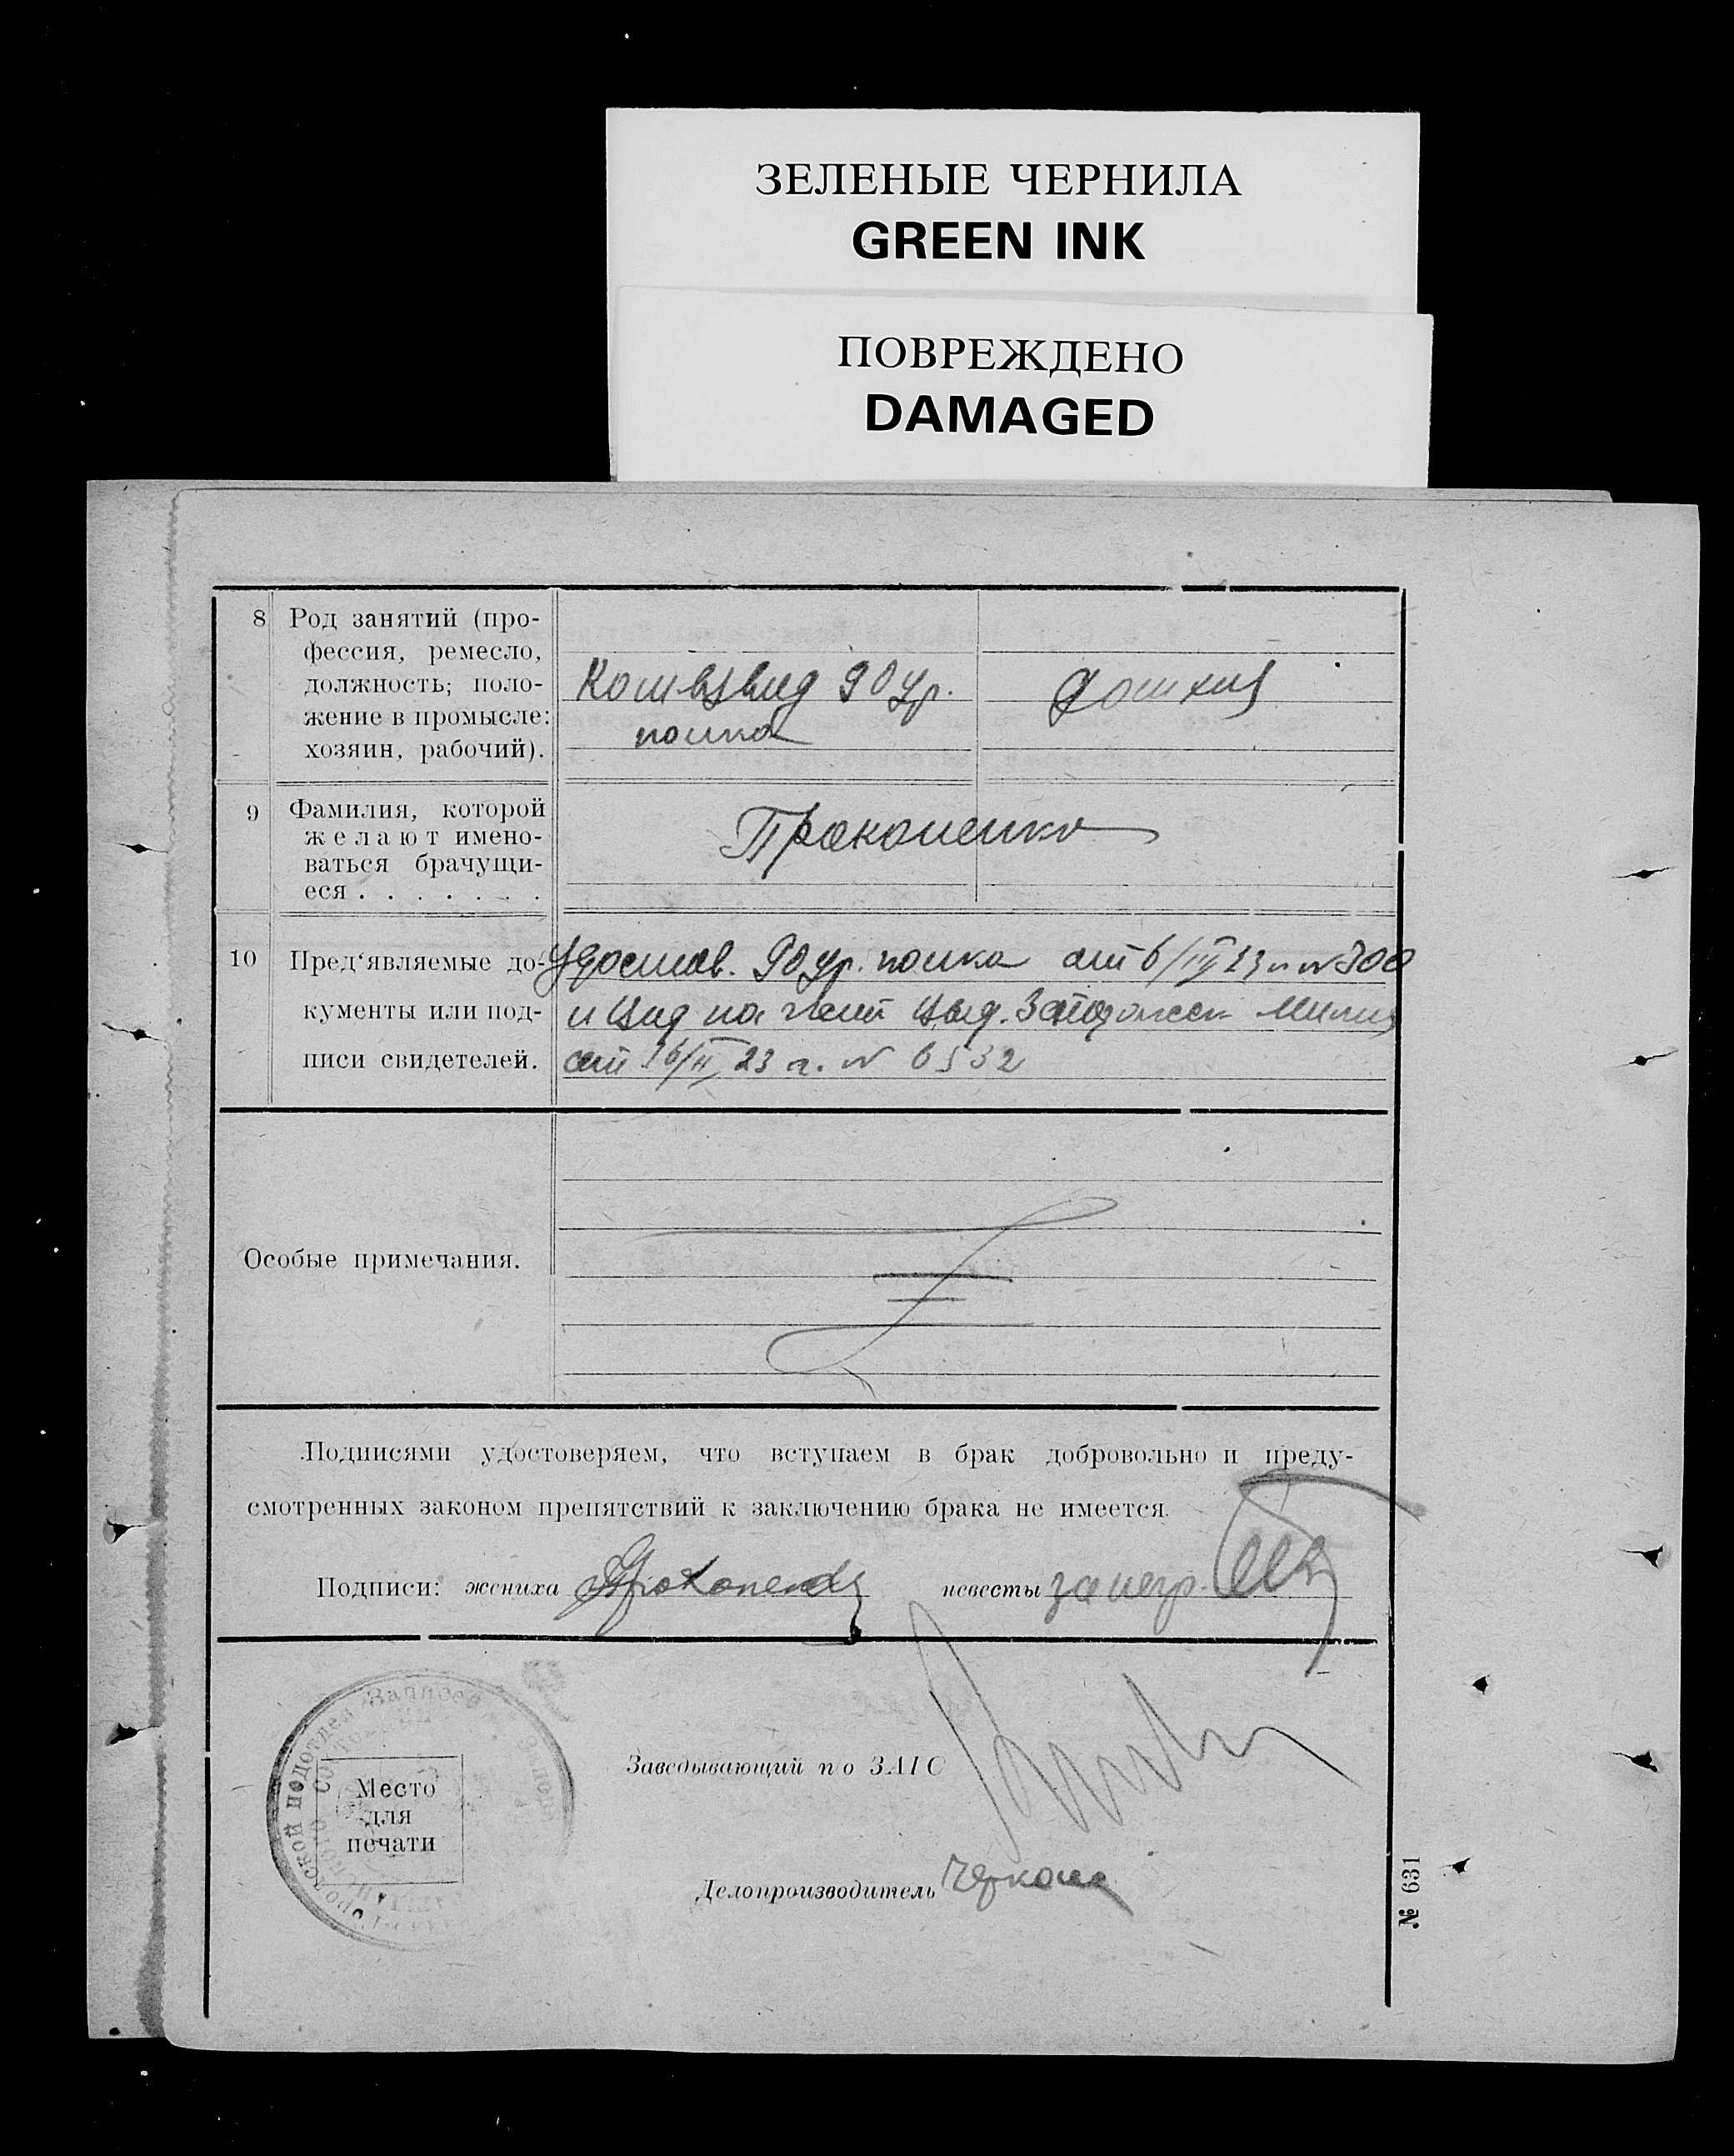 ЗЕЛЕНЫЕ ЧЕРНИЛА
GREEN INK
ПОВРЕЖДЕНО
DAMAGED
8 Род занятий (про-
фессия, ремесло,
должность; поло-
жение в промысле:
хозяин, рабочий).
90
полка
9 Фамилия, которой
желают имено-
ваться брачущи-
еся . . . . . . .
Прокопенко
10 Пред‘являемые до-
кументы или под-
писи свидетелей.
Удостов. 90 полка от 6/III 23 г. № 300
и вид на жит выд.
от 16/II 23 г. № 6532
Особые примечания.
Подписями удостоверяем, что вступаем в брак добровольно и преду-
смотренных законом препятствий к заключению брака не имеется.
Подписи: жениха Прокопенко невесты за негр.
Записей
подотдел
Место
для
печати
Заведывающий по ЗАГС
Делопроизводитель
№ 631